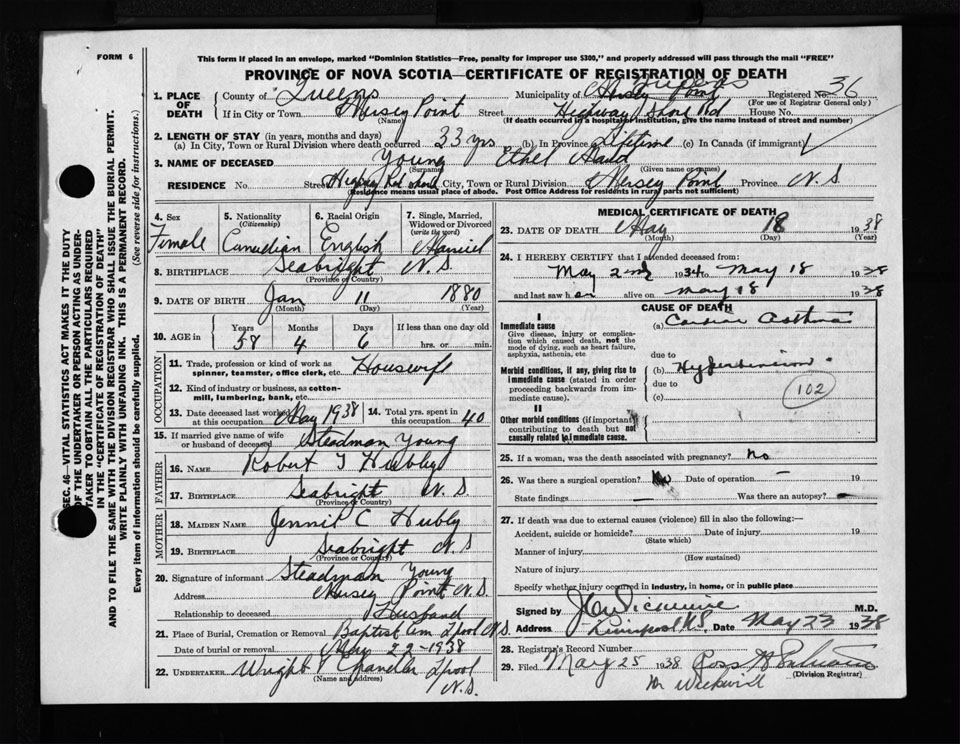 FORM 6
This form if placed in an envelope, marked "Dominion Statistics—Free, penalty for improper use $300," and properly addressed will pass through the mail "FREE"
PROVINCE OF NOVA SCOTIA—CERTIFICATE OF REGISTRATION OF DEATH
1. PLACE OF DEATH
County of Queens Municipality of Mersey Point Registered No. 36
(For use of Registrar General only)
If in City or Town Mersey Point Street Highway Shore Rd House No.
(Name) (If death occurred in a hospital or institution, give the name instead of street and number)
2. LENGTH OF STAY (in years, months and days)
(a) In City, Town or Rural Division where death occurred 33 yrs (b) In Province Lifetime (c) In Canada (if immigrant)
3. NAME OF DECEASED Young Ethel Maud
(Surname) (Given name or names)
RESIDENCE No. Street Highway Rd Shore City, Town or Rural Division Mersey Point Province N.S
(Residence means usual place of abode. Post Office Address for residents in rural parts not sufficient)
4. Sex Female
5. Nationality (Citizenship) Canadian
6. Racial Origin English
7. Single, Married, Widowed or Divorced (write the word) Married
8. BIRTHPLACE Seabright N.S
(Province or Country)
9. DATE OF BIRTH Jan 11 1880
(Month) (Day) (Year)
10. AGE in Years 58 Months 4 Days 6 If less than one day old hrs. or min.
OCCUPATION
11. Trade, profession or kind of work as spinner, teamster, office clerk, etc. Housewife
12. Kind of industry or business, as cotton-mill, lumbering, bank, etc.
13. Date deceased last worked at this occupation May 1938 14. Total yrs. spent in 40
15. If married give name of wife or husband of deceased Steadman Young
FATHER
16. NAME Robert J Hubly
17. BIRTHPLACE Seabright N.S
(Province or Country)
MOTHER
18. MAIDEN NAME Jennie C Hubly
19. BIRTHPLACE Seabright N.S
(Province or Country)
20. Signature of informant Steadman Young
Address Mersey Point N.S.
Relationship to deceased Husband
21. Place of Burial, Cremation or Removal Baptist Cem Lpool N.S.
Date of burial or removal May 22-1938
22. UNDERTAKER Wright & Chandler Lpool
(Name and address)
N.S.
MEDICAL CERTIFICATE OF DEATH
23. DATE OF DEATH May 18 1938
(Month) (Day) (Year)
24. I HEREBY CERTIFY that I attended deceased from:
May 2nd 1934 to May 18 1938
and last saw h er alive on May 18 1938
CAUSE OF DEATH
I
Immediate cause
Give disease, injury or complication which caused death, not the mode of dying, such as heart failure, asphyxia, asthenia, etc
(a) Cardiac Asthma
due to
Morbid conditions, if any, giving rise to immediate cause (stated in order proceeding backwards from immediate cause).
(b) Hypertension
due to
(c)
102
II
Other morbid conditions (if important) contributing to death but not causally related to immediate cause.
25. If a woman, was the death associated with pregnancy? No
26. Was there a surgical operation? No Date of operation — 19
State findings Was there an autopsy? —
27. If death was due to external causes (violence) fill in also the following:—
Accident, suicide or homicide? Date of injury 19
(State which)
Manner of injury
(How sustained)
Nature of injury
Specify whether injury occurred in industry, in home, or in public place
Signed by J C Wickwire M.D.
Address Liverpool N.S. Date May 23 1938
28. Registrar's Record Number
29. Filed May 25 1938
(Division Registrar)
SEC. 46—VITAL STATISTICS ACT MAKES IT THE DUTY OF THE UNDERTAKER OR PERSON ACTING AS UNDERTAKER TO OBTAIN ALL THE PARTICULARS REQUIRED IN THE "CERTIFICATE OF REGISTRATION OF DEATH" AND TO FILE THE SAME WITH THE DIVISION REGISTRAR WHO SHALL ISSUE THE BURIAL PERMIT.
WRITE PLAINLY WITH UNFADING INK. THIS IS A PERMANENT RECORD.
Every item of information should be carefully supplied. (See reverse side for instructions.)